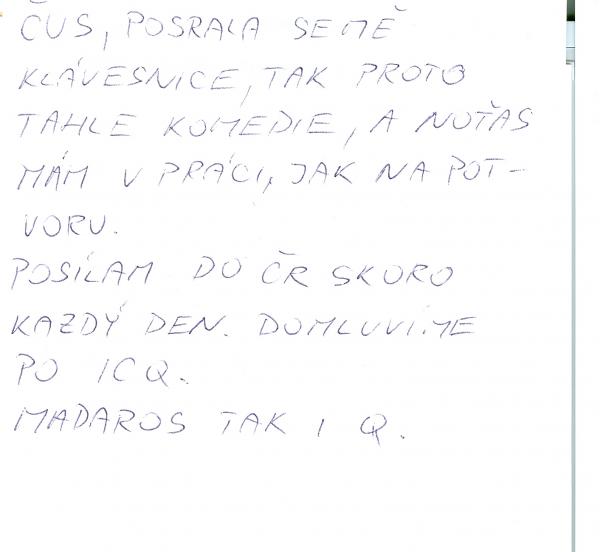 ČUS, POSRALA SE MĚ
KLÁVESNICE, TAK PROTO
TAHLE KOMEDIE, A NOŤAS
MÁM V PRÁCI, JAK NA POT-
VORU.
POSÍLAM DO ČR SKORO
KAZDÝ DEN. DOMLUVÍME
PO ICQ.
MADAROS TAK I Q.